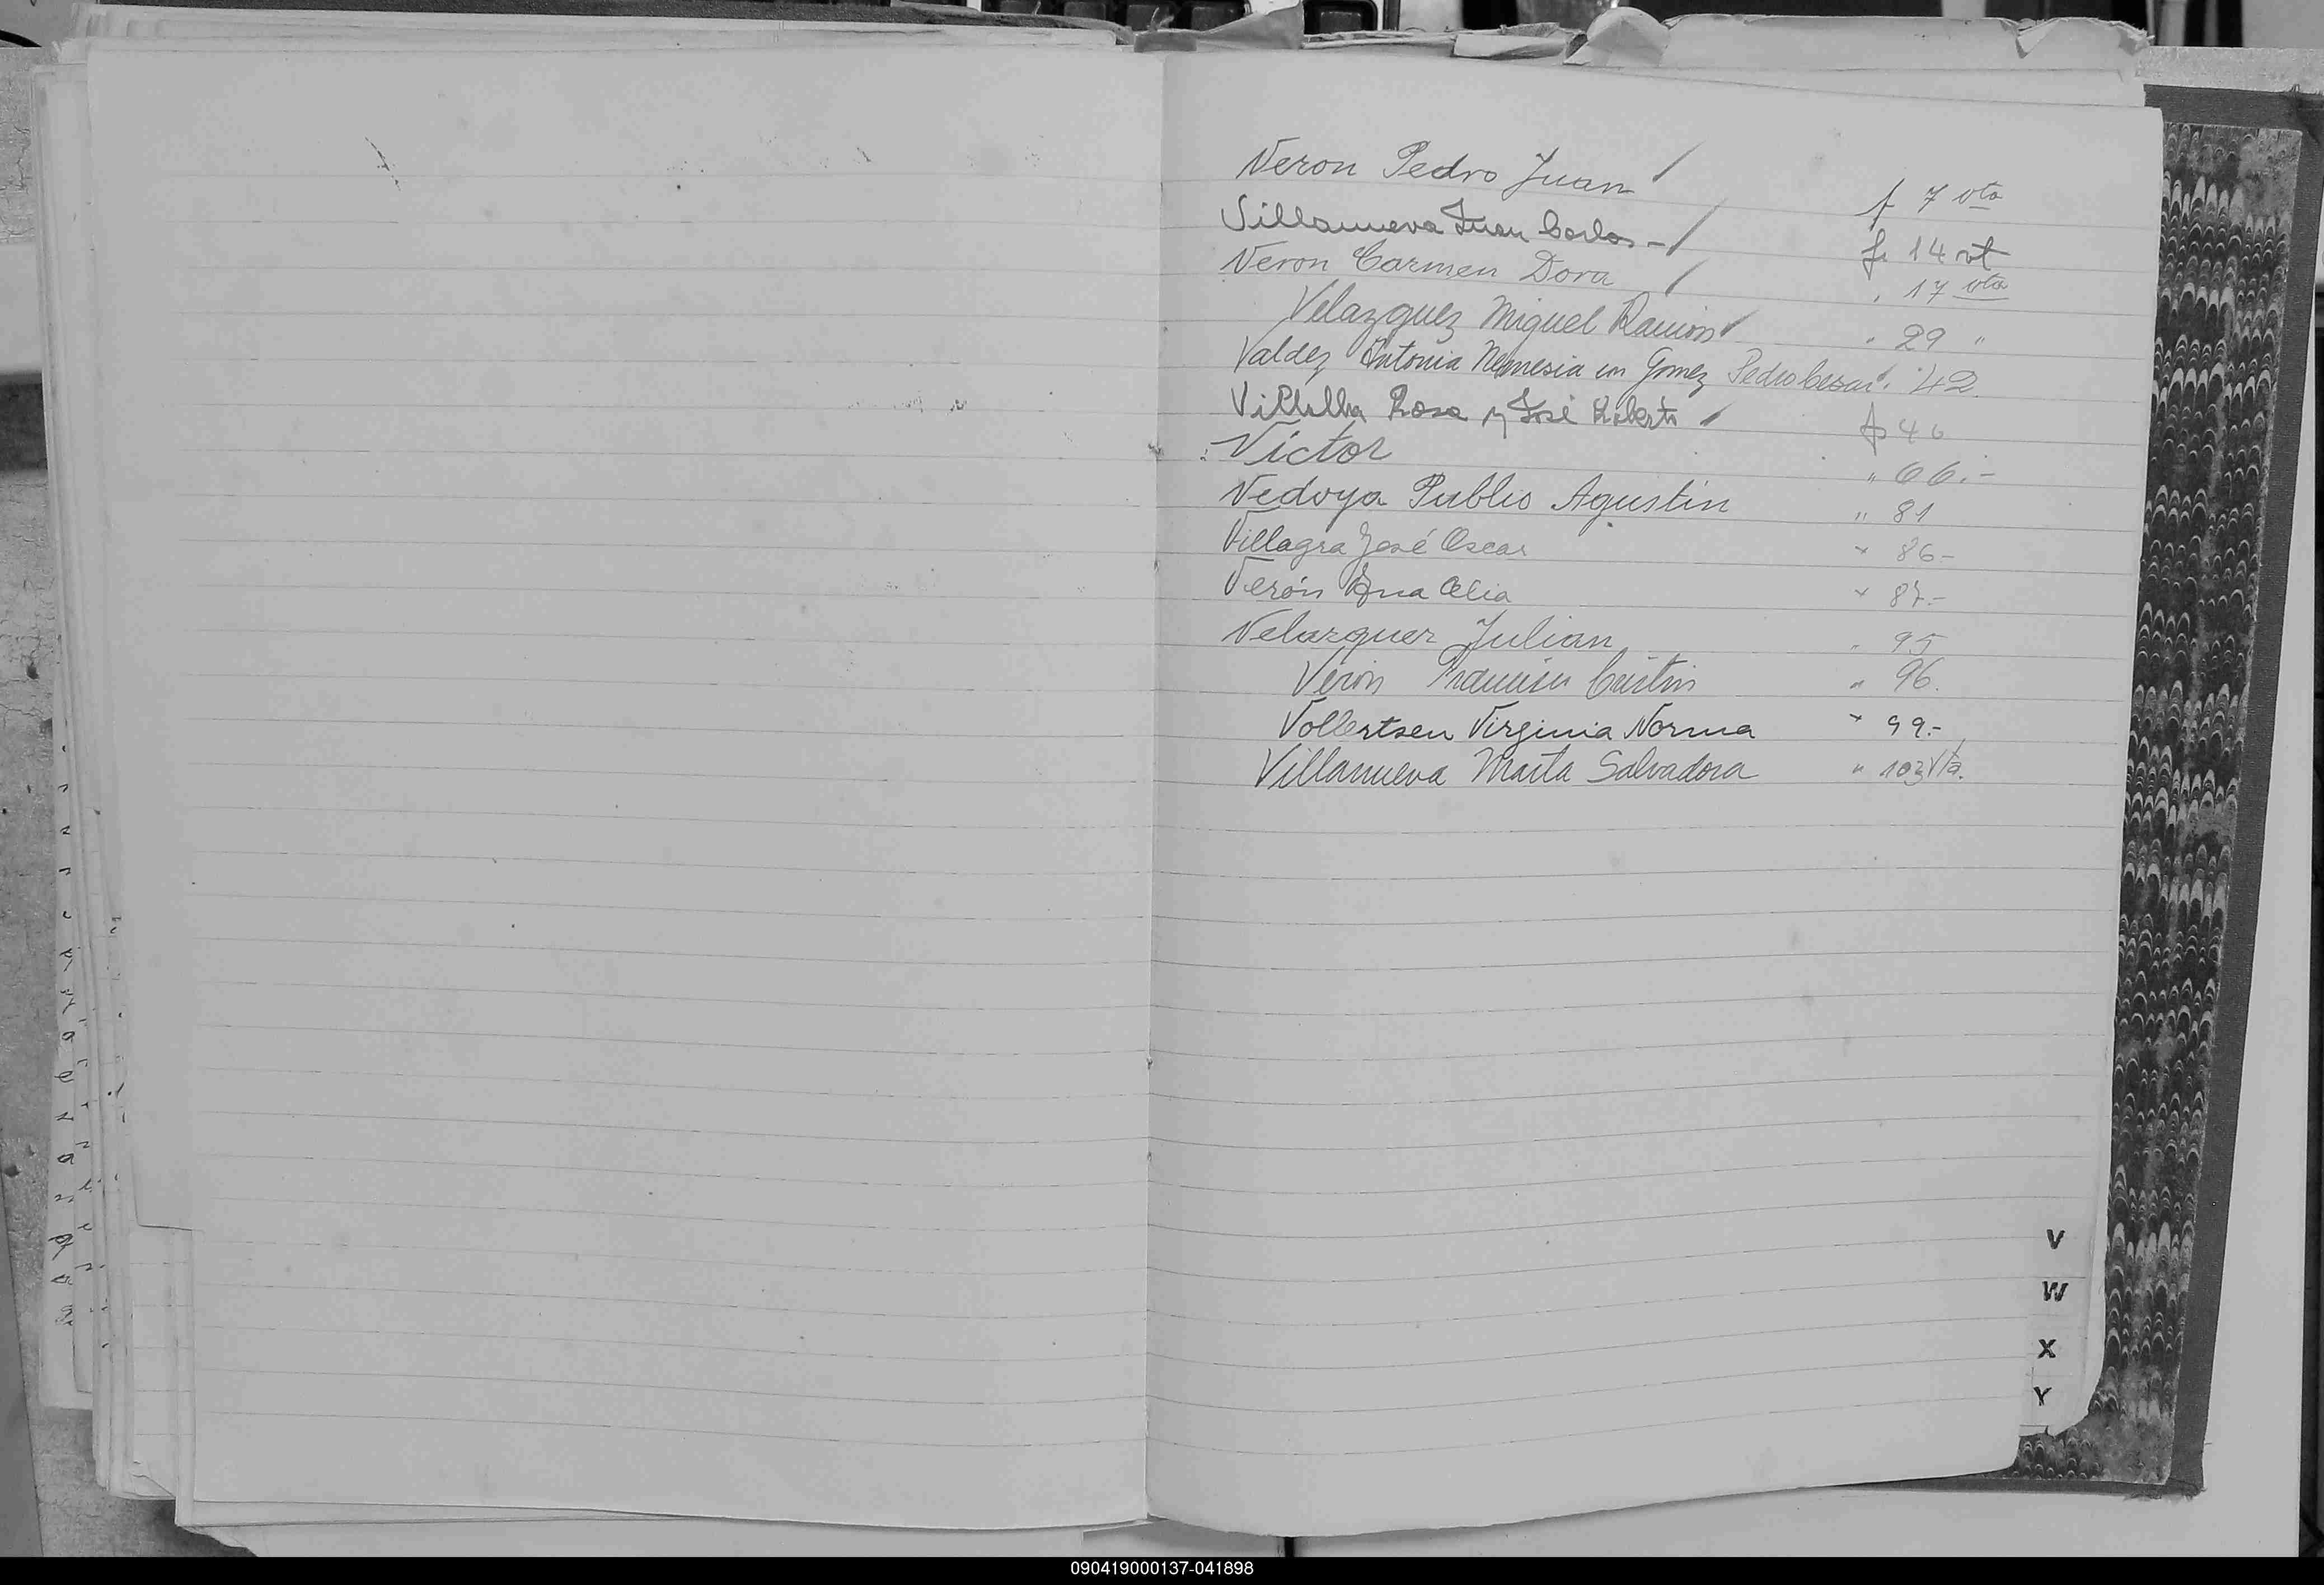 Veron Pedro Juan / f 7 vta
Villanueva Juan Carlos - / f. 14 vt
Veron Carmen Dora / " 17 vta
Velazquez Miguel Ramon / " 29 "
Valdez Antonia Nemesia con Gomez Pedro Cesar / " 42
Villalba Rosa y José Roberto / f 46
Victor " 66.-
Vedoya Publio Agustin " 81
Villagra José Oscar " 86-
Verón Ana Celia " 87.-
Velazquez Julian " 95
Verón Cristin " 96.
Vollertsen Virginia Norma " 99.-
Villanueva Marta Salvadora " 103 Vta.
V
W
X
Y
090419000137-041898